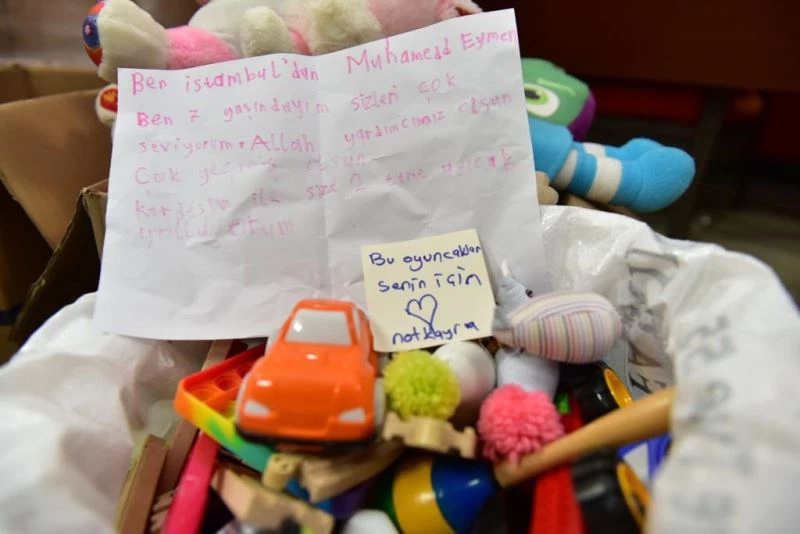 Ben istambul'dan Muhamedd Eymen
Ben 7 yaşındayım sizleri çok
seviyorum. Allah yardımcımız olsun
Çok geçmiş olsun
Kardeşim ile size 2 tane ayıcık
yolluyorum
Bu oyuncaklar
senin için
not kayra